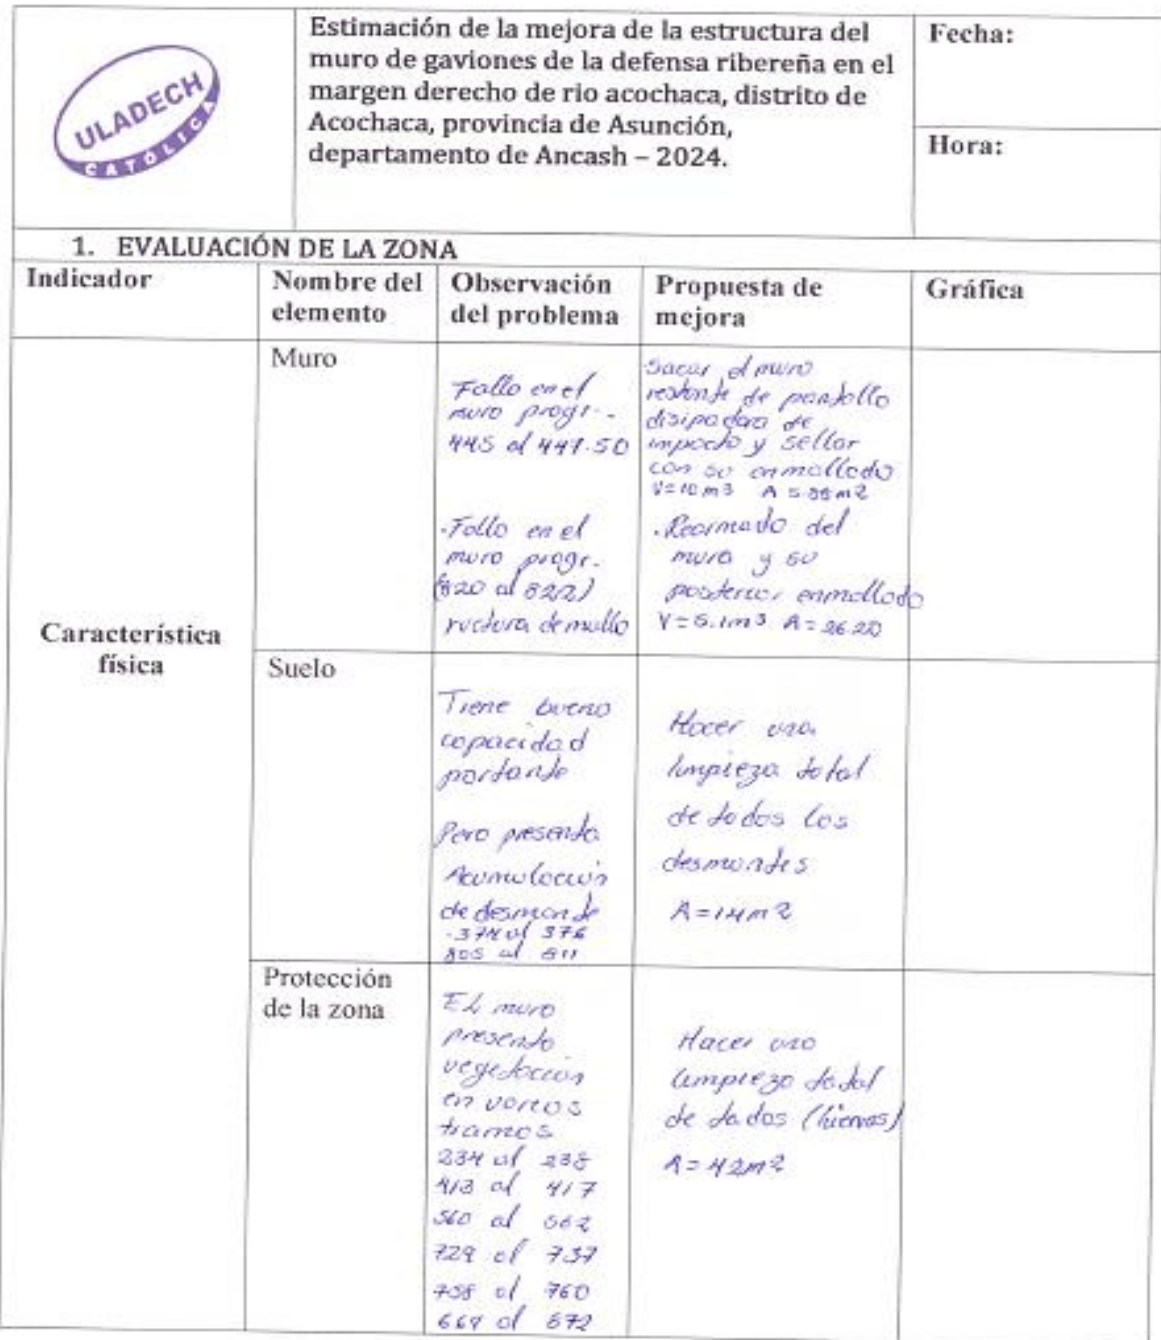 ULADECH
CATÓLICA
Estimación de la mejora de la estructura del
muro de gaviones de la defensa ribereña en el
margen derecho de rio acochaca, distrito de
Acochaca, provincia de Asunción,
departamento de Ancash – 2024.
Fecha:
Hora:
1. EVALUACIÓN DE LA ZONA
Indicador
Nombre del
elemento
Observación
del problema
Propuesta de
mejora
Gráfica
Característica
física
Muro
Fallo en el
muro progr.
445 al 447.50
.Fallo en el
muro progr.
(820 al 822)
ructura de malla
Sacar el muro
restante de pantalla
disipadora de
impacto y sellar
con su enmallado
V=10 m3 A
.Rearmado del
muro y su
posterior enmallado
V=5.1m3 A=26.20
Suelo
Tiene buena
capacidad
portante
Pero presenta
Acumulación
de desmonte
.374 al 376
805 al 811
Hacer una
limpieza total
de todos los
desmontes
A=14m2
Protección
de la zona
El muro
presenta
vegetación
en varios
tramos
234 al 238
413 al 417
560 al 562
729 al 737
758 al 760
669 al 672
Hacer una
limpieza total
de todos (hiervas)
A=42m2